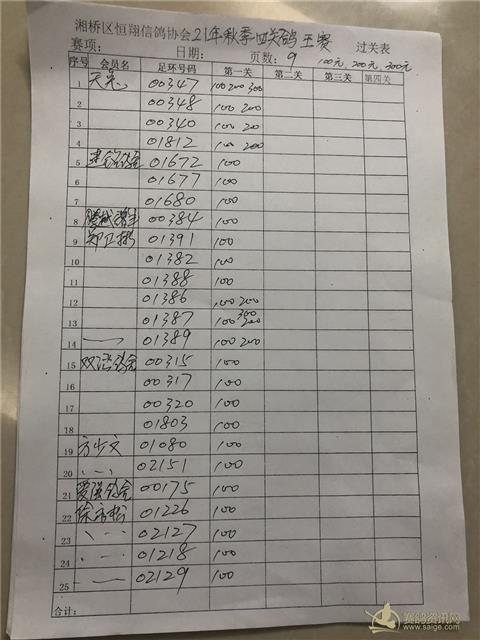 湘桥区恒翔信鸽协会21年秋季四关鸽王赛 过关表
赛项: 日期: 页数: 9 100元, 200元, 300元
序号 会员名 足环号码 第一关 第二关 第三关 第四关
1 00347 100 200 300
2 00348 100 200
3 00340 100 20
4 01812 100 200
5 01672 100
6 01677 100
7 01680 100
8 00384 100
9 郑卫彬 01391 100
10 01382 100
11 01388 100
12 01386 100 200
13 01387 100 200 300
14 01389 100 200
15 00315 100
16 00317 100
17 00320 100
18 01803 100
19 方少文 01080 100
20 02151 100
21 爱强鸽舍 00175 100
22 01226 100
23 02127 100
24 01218 100
25 02129 100
合计:
赛鸽资讯网
www.saige.com